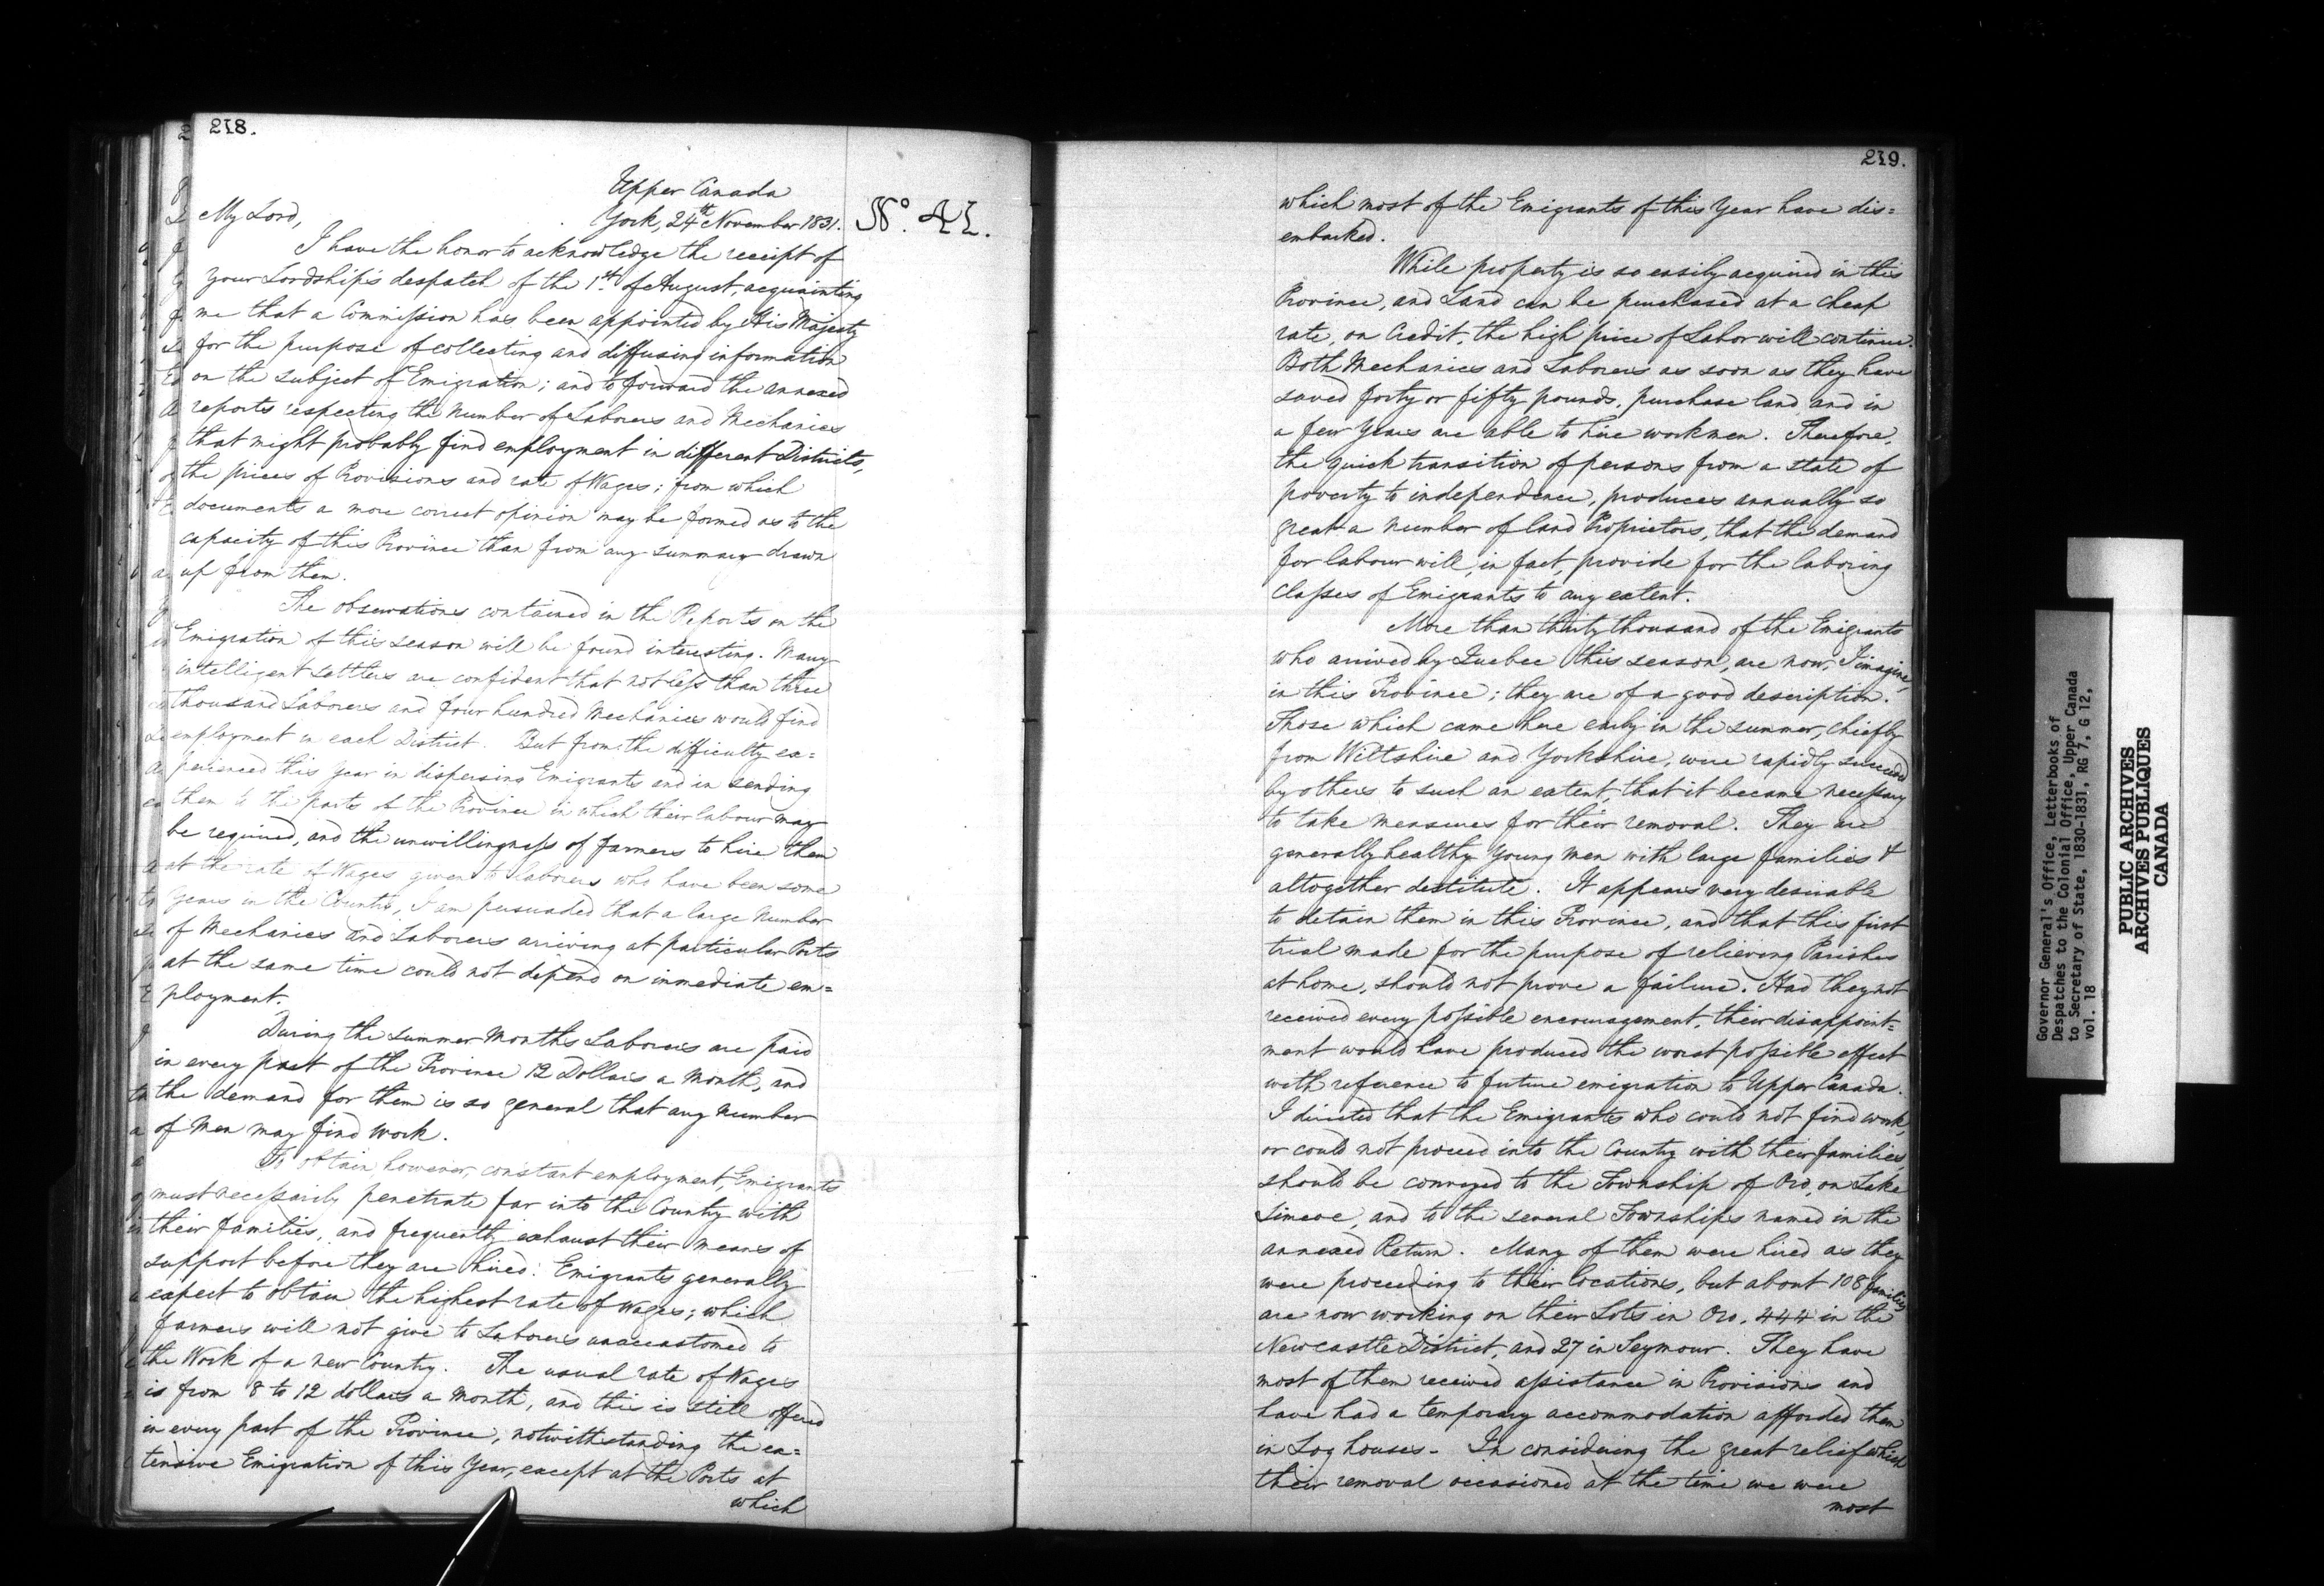 218.
Upper Canada
York, 24th November 1831.
No. 41.
My Lord,
I have the honor to acknowledge the receipt of
your Lordship's despatch of the 1st of August, acquainting
me that a Commission has been appointed by His Majesty
for the purpose of collecting and diffusing information
on the subject of Emigration; and to forward the annexed
reports respecting the number of Laborers and Mechanics
that might probably find employment in different Districts,
the prices of Provisions and rate of Wages; from which
documents a more correct opinion may be formed as to the
capacity of this Province than from any summary drawn
up from them.
The observations contained in the Reports on the
Emigration of this season will be found interesting. Many
intelligent settlers are confident that not less than three
thousand Laborers and four hundred Mechanics would find
employment in each District. But from the difficulty ex=
perienced this year in dispersing Emigrants and in sending
them to the parts of the Province in which their labour may
be required, and the unwillingness of farmers to hire them
at the rate of Wages given to laborers who have been some
years in the Country, I am persuaded that a large number
of Mechanics and Laborers arriving at particular Ports
at the same time could not depend on immediate em=
ployment.
During the summer months Laborers are paid
in every part of the Province 12 Dollars a month, and
the demand for them is so general that any number
of Men may find work.
To obtain however, constant employment, Emigrants
must necessarily penetrate far into the Country with
their families, and frequently exhaust their means of
support before they are hired. Emigrants generally
expect to obtain the highest rate of wages; which
farmers will not give to Laborers unaccustomed to
the Work of a new Country. The usual rate of Wages
is from 8 to 12 dollars a month, and this is still offered
in every part of the Province, notwithstanding the ex=
tensive Emigration of this Year, except at the Ports at
which
219.
which most of the Emigrants of this Year have dis=
embarked.
While property is so easily acquired in this
Province, and Land can be purchased at a cheap
rate, on Credit, the high price of Labor will continue.
Both Mechanics and Laborers as soon as they have
saved forty or fifty pounds, purchase land and in
a few years are able to hire workmen. Therefore,
the quick transition of persons from a state of
poverty to independence, produces annually so
great a number of land Proprietors, that the demand
for labour will, in fact, provide for the laboring
classes of Emigrants to any extent.
More than thirty thousand of the Emigrants
who arrived by Quebec this season, are now, I imagine,
in this Province; they are of a good description.
Those which came here early in the summer, chiefly
from Wiltshire and Yorkshire, were rapidly succeeded
by others to such an extent, that it became necessary
to take measures for their removal. They are
generally healthy young men with large families &
altogether destitute. It appears very desirable
to detain them in this Province, and that this first
trial made for the purpose of relieving Parishes
at home, should not prove a failure. Had they not
received every possible encouragement, their disappoint=
ment would have produced the worst possible effect
with reference to future emigration to Upper Canada.
I directed that the Emigrants who could not find work,
or could not proceed into the Country with their families,
should be conveyed to the Township of Oro, on Lake
Simcoe, and to the several Townships named in the
annexed Return. Many of them were hired as they
were proceeding to their locations, but about 108 families
are now working on their Lots in Oro, 444 in the
Newcastle District, and 27 in Seymour. They have
most of them received assistance in Provisions and
have had a temporary accommodation afforded them
in Log houses. In considering the great relief which
their removal occasioned at the time we were
most
Governor General's Office, Letterbooks of
Despatches to the Colonial Office, Upper Canada
to Secretary of State, 1830-1831, RG 7, G 12,
vol. 18
PUBLIC ARCHIVES
ARCHIVES PUBLIQUES
CANADA